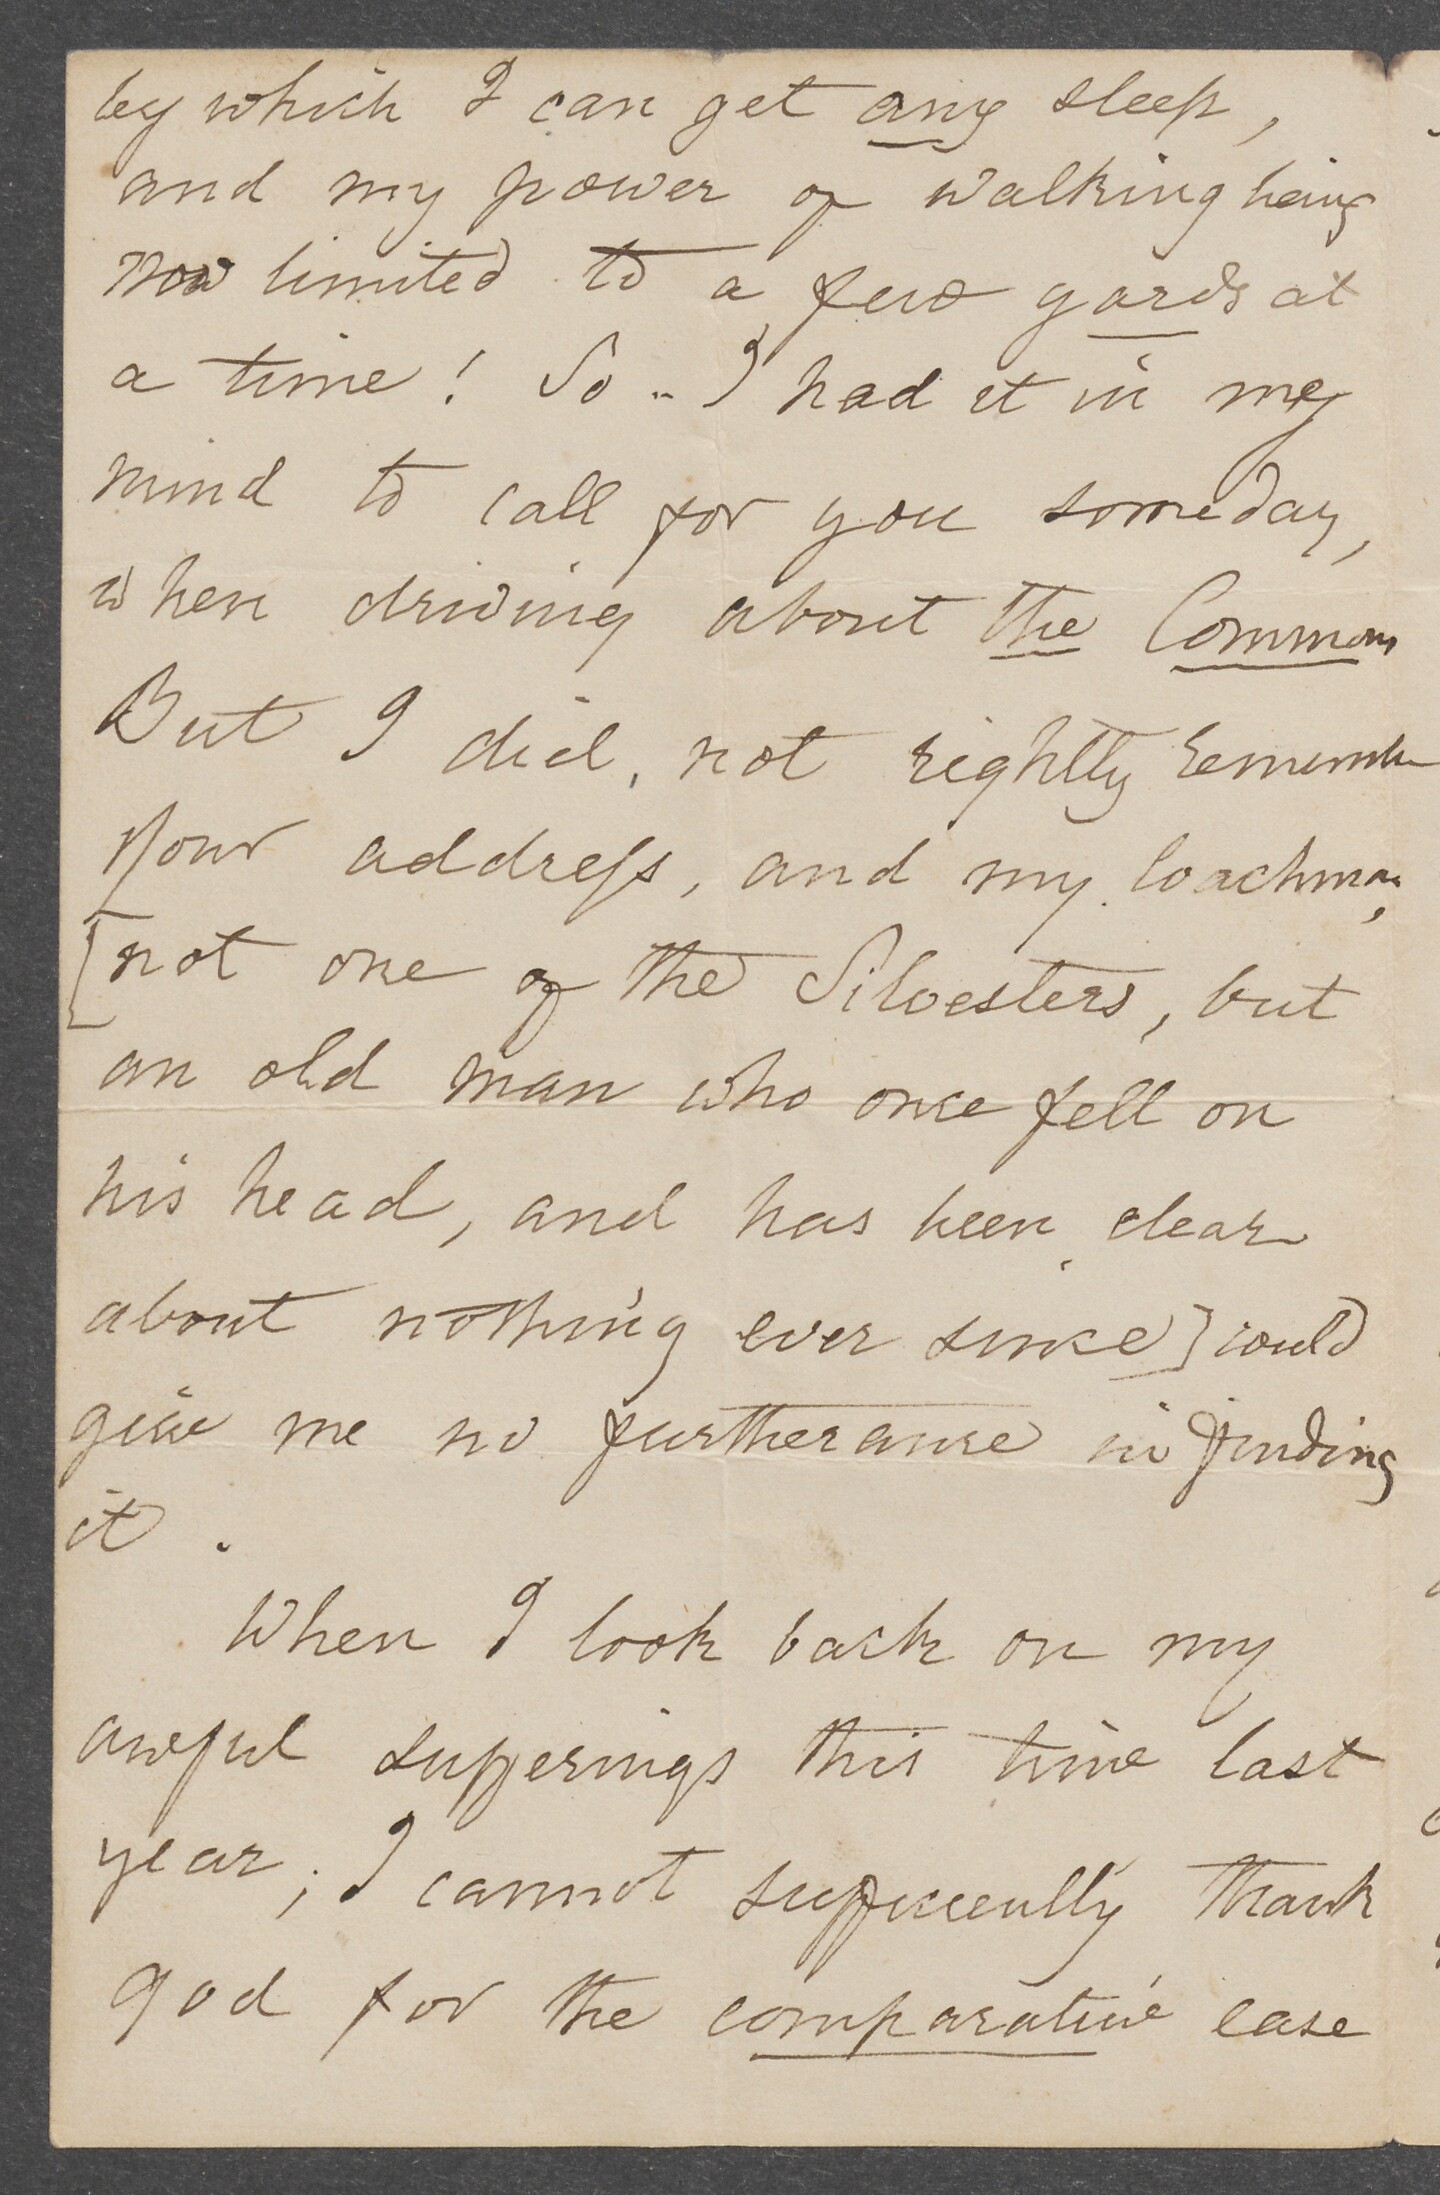 by which I can get any sleep,
and my power of walking being
now limited to a few yards at
a time! So .. I had it in my
mind to call for you someday,
when driving about the Common
But I did, not rightly remember
your address, and my coachman,
[not one of the Silvesters, but
an old man who once fell on
his head, and has been clear
about nothing ever since] could
give me no furtherance in finding
it .
When I look back on my
awful sufferings this time last
year, I cannot sufficiently thank
God for the comparative ease